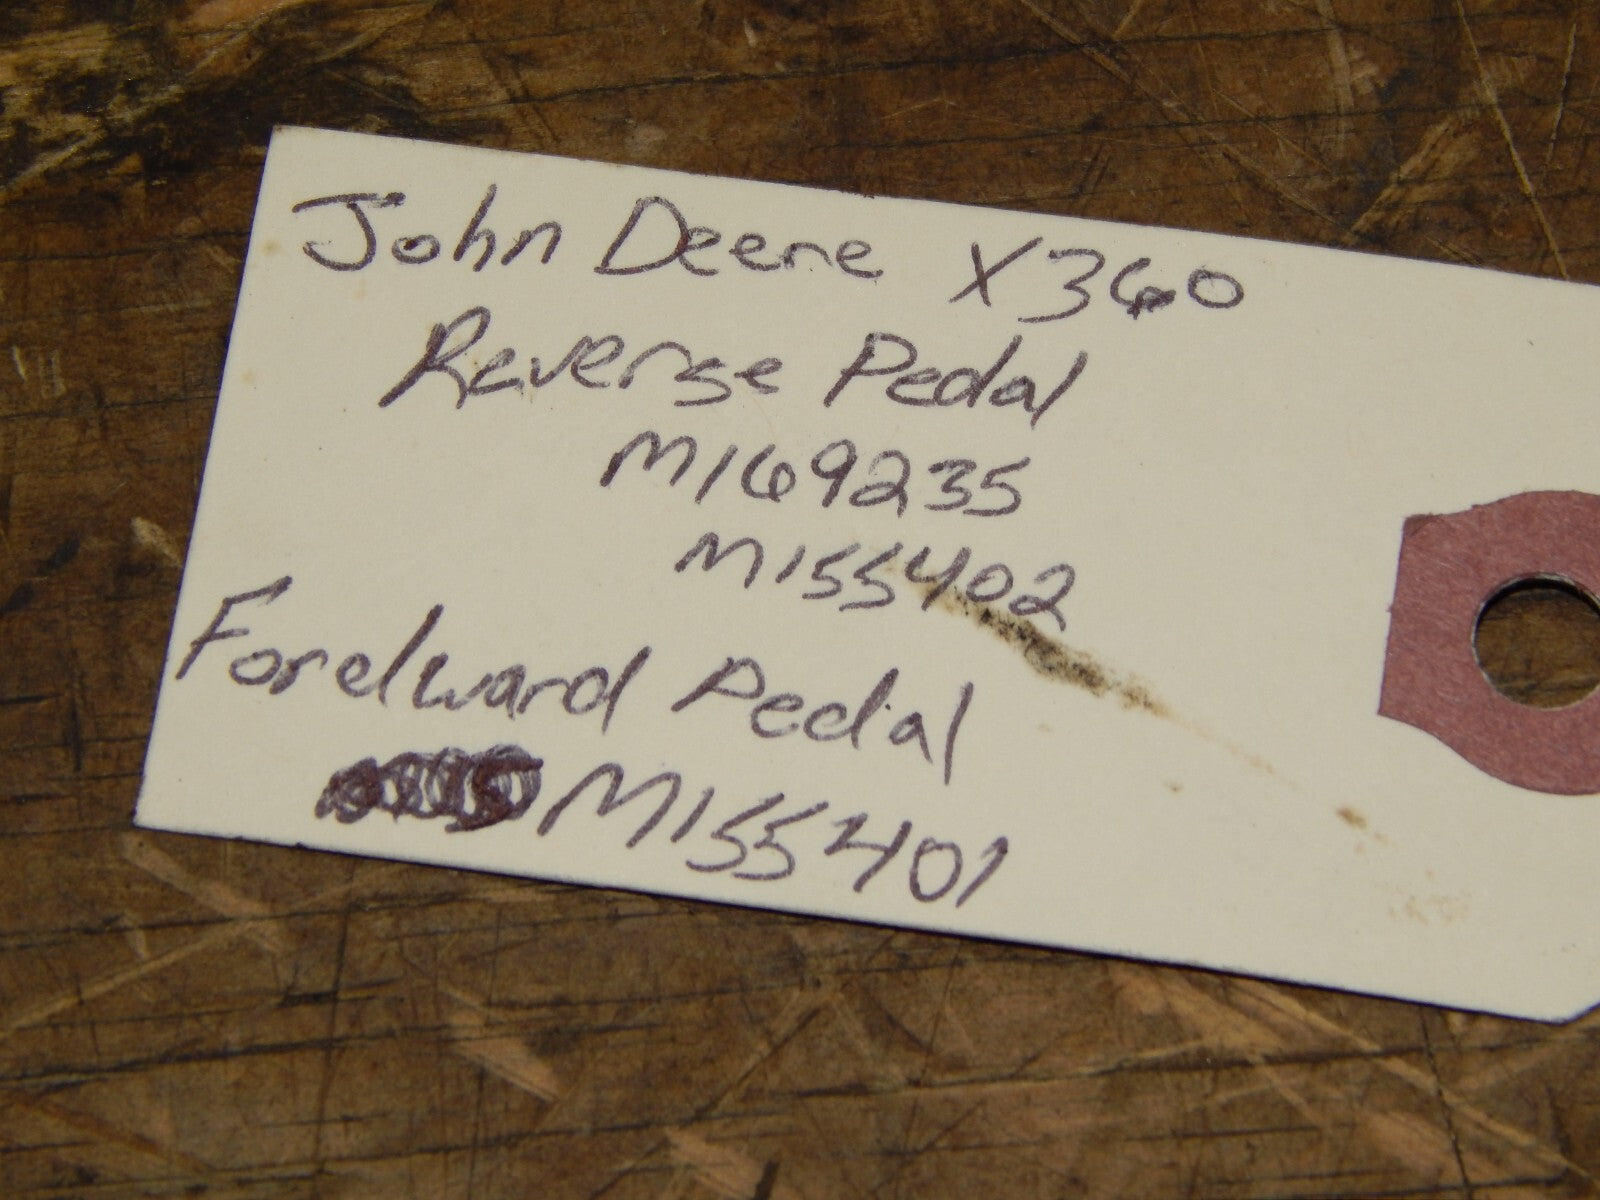 John Deere X360
Reverse Pedal
M169235
M155402
Forelward Pedal
M155401